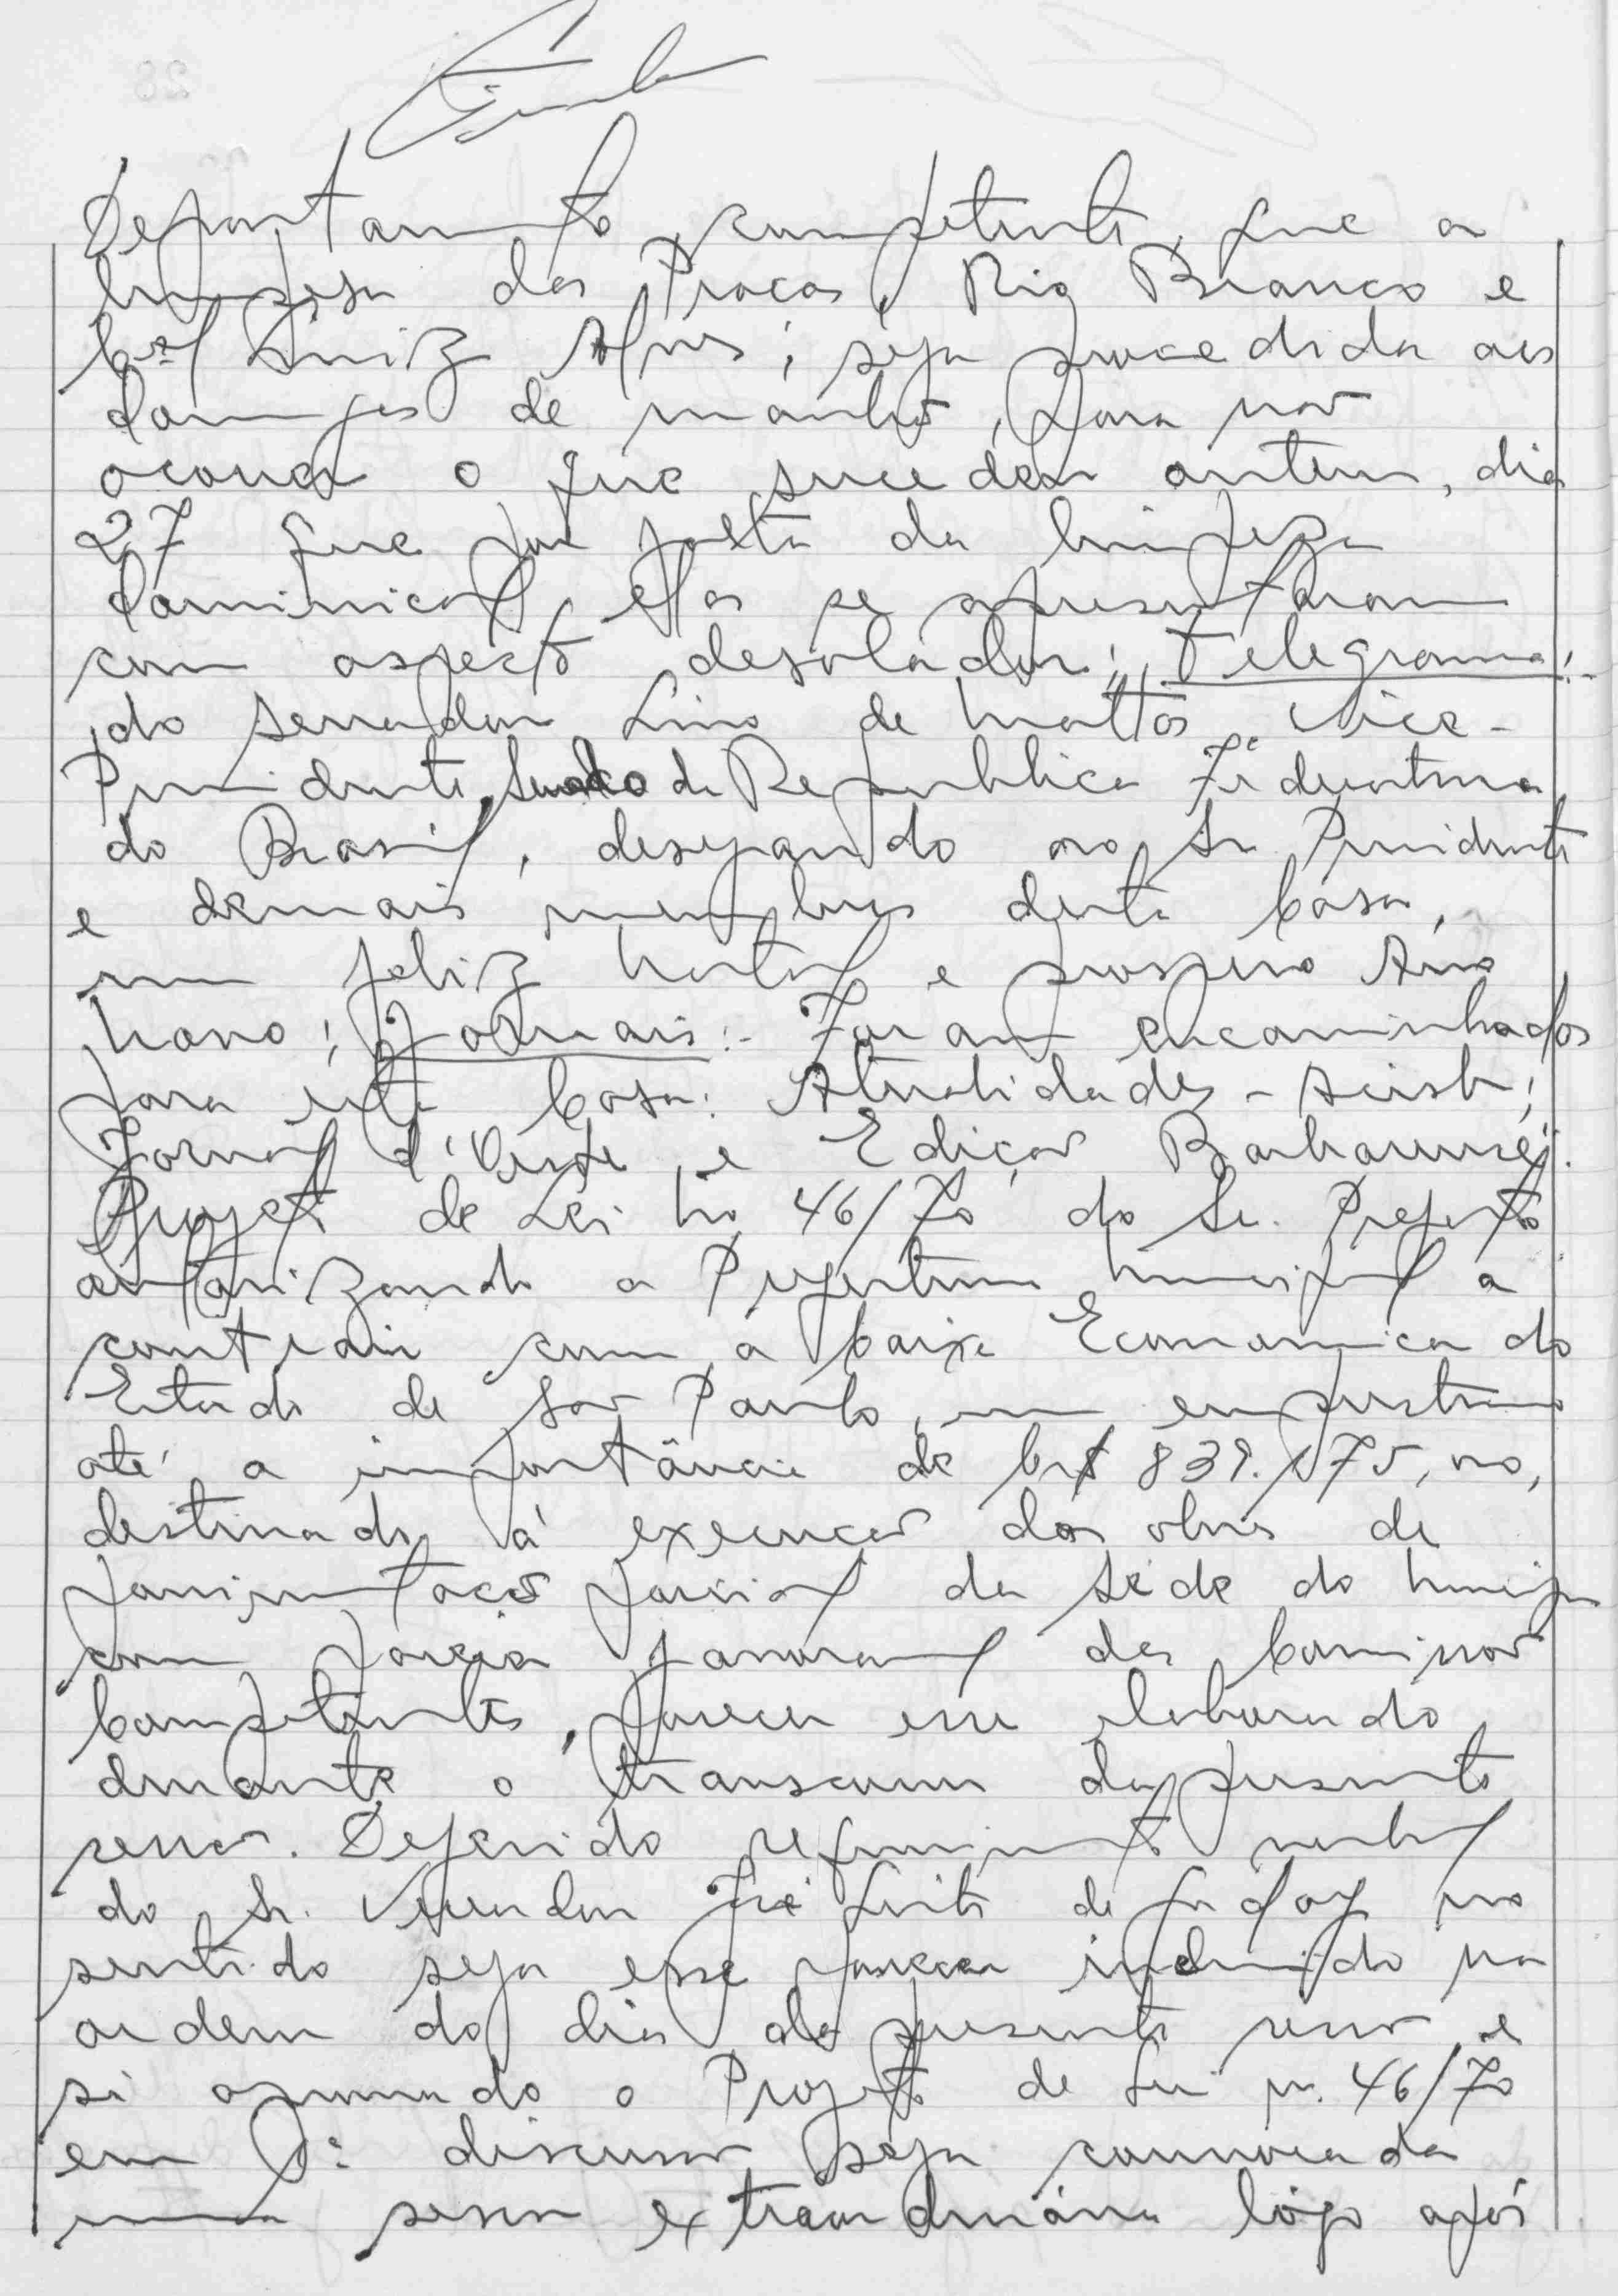 Departamento competente, que a
limpesa das Praças, Rio Branco e
Cel Luiz Alves; seja procedida aos
domingos de manhã, para não
ocorrer o que sucedeu ontem, dia
27 que por falta da limpeza
dominical, ellas se apresentaram
com aspecto desolador; Telegrama:-
do Senador Lino de Mattos Vice-
Presidente Senado da Republica Federativa
do Brasil, desejando ao Sr Presidente
e demais membros desta Casa,
um feliz Natal e prospero Ano
Novo; Jornais:- Foram encaminhados
para esta Casa: Atualidades -
Jornal d'Oeste e Edição Barbarense.
Projeto de Lei No 46/70 do Sr. Prefeito
autorizando a Prefeitura Municipal a
contrair com a Caixa Economica do
Estado de São Paulo, um emprestimo
até a importância de Cr$ 839.175,00,
destinado á execução das obras de
pavimentação parcial da séde do Municipio
com parecer favoravel da Comissão
Competente, parecer esse elaborado
durante o transcurso da presente
sessão. Deferido requerimento verbal
do Sr. Vereador José Leite de Godoy no
sentido seja esse parecer incluido na
ordem do dia da presente sessão e
si aprovado o Projeto de Lei n. 46/70
em 1ª discussão seja convocada
uma sessão extraordinária lógo após